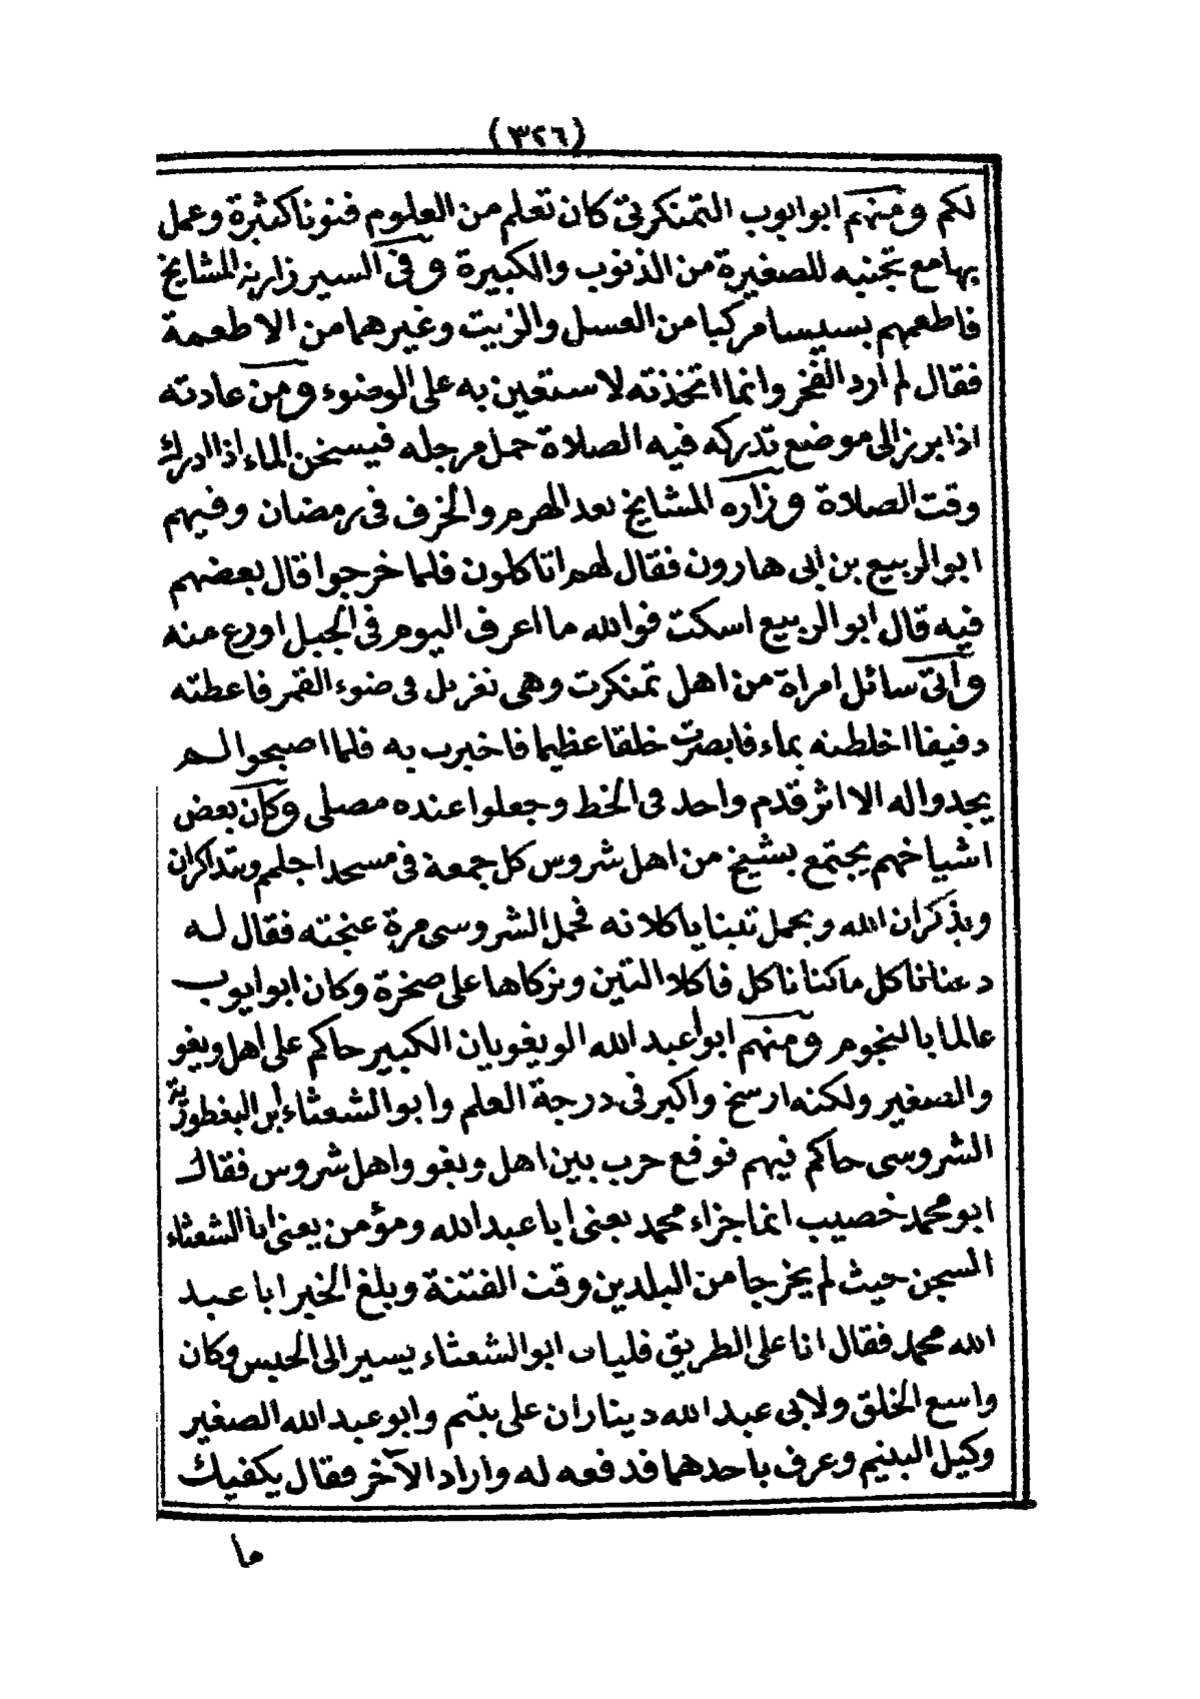 (٣٢٦)
لكم ومنهم ابوايوب التمنكرتى كان تعلم من العلوم فنونا كثيرة وعمل
بها مع تجنبه للصغيرة من الذنوب والكبيرة وفى السير زاربه المشايخ
فاطعمهم بسيسا مركبا من العسل والزيت وغيرهما من الاطعمة
فقال لم ارد الفخر وانما اتخذته لاستعين به على الوضوء ومن عادته
اذا برز الى موضع تدركه فيه الصلاة حمل مرجله فيسخن الماء اذا ادرك
وقت الصلاة وزاره المشايخ بعد الهرم والخرف فى رمضان وفيهم
ابو الربيع بن ابى هارون فقال لهم اتاكلون فلما خرجوا قال بعضهم
فيه قال ابو الربيع اسكت فوالله ما اعرف اليوم فى الجبل اورع منه
واتى سائل امراة من اهل تمنكرت وهى تغربل فى ضوء القمر فاعطته
دقيقا اخلطته بماء فابصرت خلقا عظيما فاخبرت به فلما اصبحوا لم
يجدوا له الا اثر قدم واحد فى الخط وجعلوا عنده مصلى وكان بعض
اشياخهم يجتمع بشيخ من اهل شروس كل جمعة فى مسجد اجلم ويتذاكران
ويذكران الله ويحمل تبنا ياكلانه فحمل الشروسى مرة عنجته فقال له
دعنا ناكل ما كنا ناكل فاكلا التين وتركاها على صخرة وكان ابوايوب
عالما بالنجوم ومنهم ابو عبد الله الويغويان الكبير حاكم على اهل ويغو
والصغير ولكنه ارسخ واكبر فى درجة العلم وابو الشعثاء ابن البغطورية
الشروسى حاكم فيهم فوقع حرب بين اهل ويغو واهل شروس فقال
ابو محمد خصيب انما جزاء محمد يعنى ابا عبد الله ومؤمن يعنى ابا الشعثاء
السجن حيث لم يخرجا من البلدين وقت الفتنة وبلغ الخبر ابا عبد
الله محمد فقال انا على الطريق فليات ابو الشعثاء يسير الى الحبس وكان
واسع الخلق ولابى عبد الله ديناران على يتيم وابو عبد الله الصغير
وكيل اليتيم وعرف باحدهما فدفعه له واراد الآخر فقال يكفيك
ما